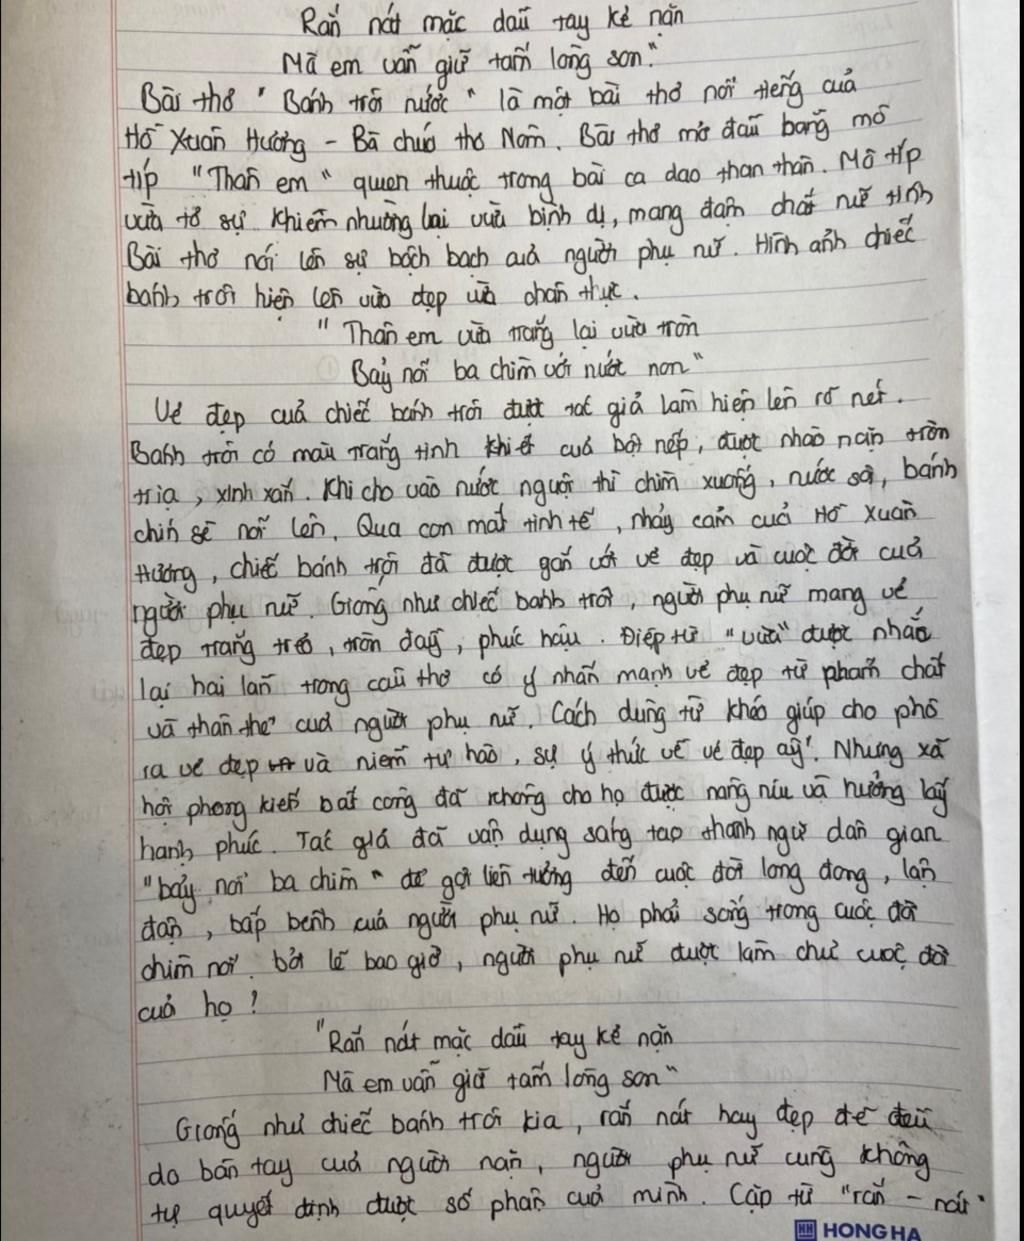 Rắn nát mặc dầu tay kẻ nặn
Mà em vẫn giữ tấm lòng son"
Bài thơ "Bánh trôi nước" là một bài thơ nổi tiếng của
Hồ Xuân Hương - Bà chúa thơ Nôm. Bài thơ mở đầu bằng mô
típ "Thân em" quen thuộc trong bài ca dao than thân. Mô típ
vừa tỏ sự khiêm nhường lại vừa bình dị, mang đậm chất nữ tính
Bài thơ nói lên sự bộch bạch của người phụ nữ. Hình ảnh chiếc
bánh trôi hiện lên vừa đẹp vừa chân thực.
"Thân em vừa trắng lại vừa tròn
Bảy nổi ba chìm với nước non"
Vẻ đẹp của chiếc bánh trôi được tác giả làm hiện lên rõ nét.
Bánh trôi có màu trắng tinh khiết của bột nếp, được nhào nặn tròn
trịa, xinh xắn. Khi cho vào nước nguội thì chìm xuống, nước sôi, bánh
chín sẽ nổi lên. Qua con mắt tinh tế, nhạy cảm của Hồ Xuân
Hương, chiếc bánh trôi đã được gắn với vẻ đẹp và cuộc đời của
người phụ nữ. Giống như chiếc bánh trôi, người phụ nữ mang vẻ
đẹp trắng trẻo, tròn đầy, phúc hậu. Điệp từ "vừa" được nhắc
lại hai lần trong câu thơ có ý nhấn mạnh vẻ đẹp từ phẩm chất
và thân thể của người phụ nữ. Cách dùng từ khéo giúp cho phô
ra vẻ đẹp và niềm tự hào, sự ý thức về vẻ đẹp ấy! Nhưng xã
hội phong kiến bất công đã không cho họ được nâng niu và hưởng lấy
hạnh phúc. Tác giả đã vận dụng sáng tạo thành ngữ dân gian
"bảy nổi ba chìm" để gợi liên tưởng đến cuộc đời long đong, lận
đận, bấp bênh của người phụ nữ. Họ phải sống trong cuộc đời
chìm nổi. bởi lẽ bao giờ, người phụ nữ được làm chủ cuộc đời
của họ!
"Rắn nát mặc dầu tay kẻ nặn
Mà em vẫn giữ tấm lòng son"
Giống như chiếc bánh trôi kia, rắn nát hay đẹp đẽ đều
do bàn tay của người nặn, người phụ nữ cũng không
tự quyết định được số phận của mình. Cặp từ "rắn - nát"
HH HONG HA